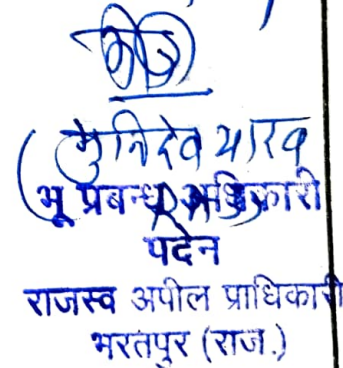 (मुनिदेव यादव
भू प्रबन्ध अधिकारी
पदेन
राजस्व अपील प्राधिकारी
भरतपुर (राज.)